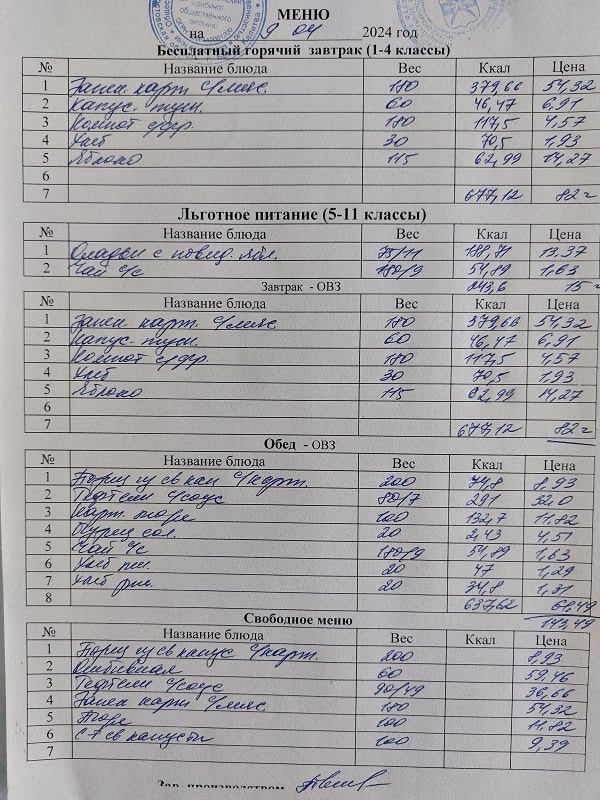 МЕНЮ
на 9 04 2024 год
Бесплатный горячий завтрак (1-4 классы)
№ Название блюда Вес Ккал Цена
1 Запек. карт. с/мяс. 180 379,66 54,32
2 Капус. туш. 60 46,47 6,91
3 Компот с/фр. 180 117,5 4,57
4 Хлеб 30 70,5 1,93
5 Яблоко 115 62,99 14,27
6
7 677,12 82=
Льготное питание (5-11 классы)
№ Название блюда Вес Ккал Цена
1 Оладьи с повид. ябл. 75/11 188,71 13.37
2 Чай с/с 180/9 54,89 1,63
243,6 15=
Завтрак - ОВЗ
№ Название блюда Вес Ккал Цена
1 Запек. карт. с/мяс. 180 379,66 54,32
2 Капус. туш. 60 46,47 6,91
3 Компот с/фр. 180 117,5 4,57
4 Хлеб 30 70,5 1,93
5 Яблоко 115 62,99 14,27
6
7 677,12 82=
Обед - ОВЗ
№ Название блюда Вес Ккал Цена
1 Борщ из св кап с/карт. 200 74,8 8,93
2 Тефтели с/соус 80/7 291 32.0
3 Карт. пюре 100 132,7 11,82
4 Огурец сол. 20 2,43 4,51
5 Чай с/с 180/9 54,89 1,63
6 Хлеб пш. 20 47 1,29
7 Хлеб рж. 20 34,8 1,31
8 637,62 61,49
143,49
Свободное меню
№ Название блюда Вес Ккал Цена
1 Борщ из св капус с/карт. 200 8,93
2 Отбивная 60 59.46
3 Тефтели с/соус 90/49 36,66
4 Запек карт. с/мяс. 180 54,32
5 Пюре 100 11,82
6 С-т св капусты 100 9,39
7
Зав. производством